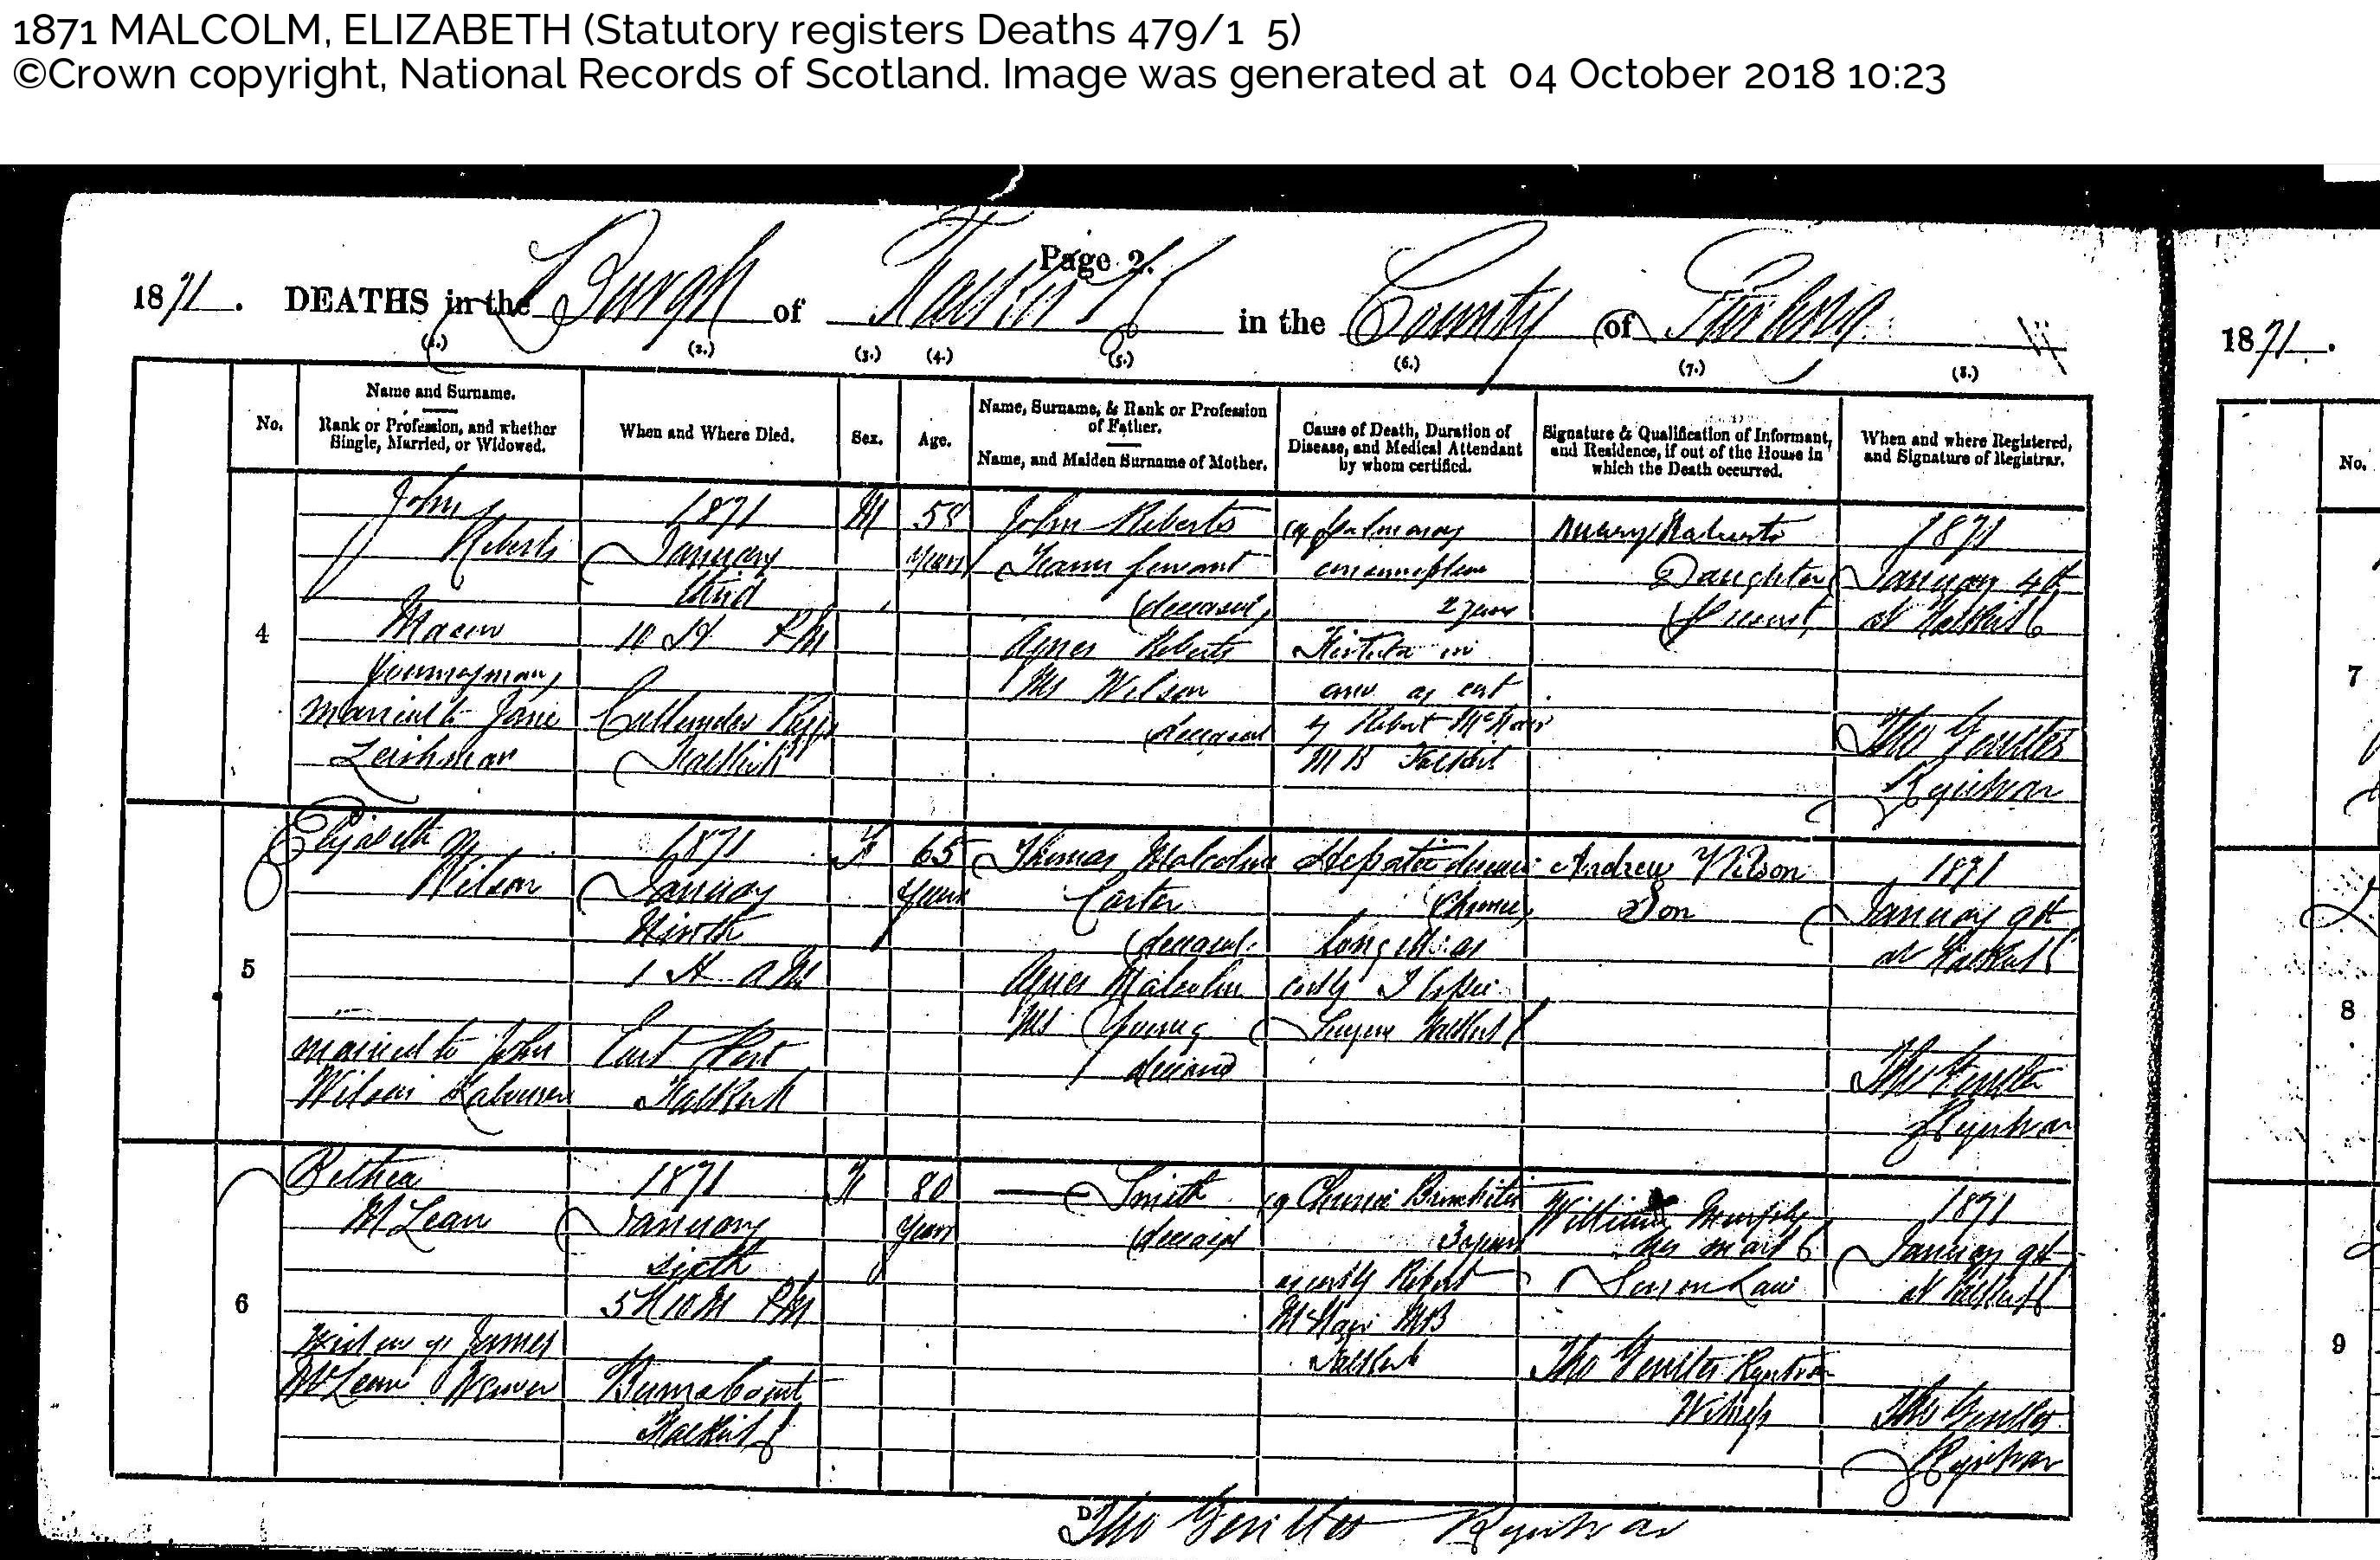 1871 MALCOLM, ELIZABETH (Statutory registers Deaths 479/1 5)
©Crown copyright, National Records of Scotland. Image was generated at 04 October 2018 10:23
Page 2.
1871. DEATHS in the Burgh of Falkirk in the County of Stirling
1871.
(1.) (2.) (3.) (4.) (5.) (6.) (7.) (8.)
No.
Name and Surname.
Rank or Profession, and whether
Single, Married, or Widowed.
When and Where Died.
Sex.
Age.
Name, Surname, & Rank or Profession
of Father.
Name, and Maiden Surname of Mother.
Cause of Death, Duration of
Disease, and Medical Attendant
by whom certified.
Signature & Qualification of Informant,
and Residence, if out of the House in
which the Death occurred.
When and where Registered,
and Signature of Registrar.
No.
4
John
Roberts
Mason
Journeyman
married to Jane
Leishman
1871
January
third
10 H PM
Callendar Riggs
Falkirk
M
58
years
John Roberts
(deceased)
Agnes Roberts
MS Wilson
deceased
Pulmonary
consumption
2 years
Fistula in
ano as cert
by Robert McNair
MB Falkirk
Daughter
(Present)
1871
January 4th
at Falkirk
Tho
Registrar
5
Elizabeth
Wilson
married to John
Wilson Labourer
1871
January
Ninth
1 H AM
East Port
Falkirk
F
65
years
Thomas Malcolm
Carter
(deceased)
Agnes Malcolm
MS Young
deceased
Hepatic disease
(Chronic)
as
Surgeon Falkirk
Andrew Wilson
Son
1871
January 9th
at Falkirk
Tho
Registrar
6
Bethea
McLean
Widow of James
McLean Weaver
1871
January
sixth
5 H 10 M PM
Burnabout
Falkirk
F
80
years
— Smith
(deceased)
Chronic Bronchitis
3 years
as cert by Robert
McNair MB
Falkirk
William x Murphy
his mark
Son in Law
Tho Registrar
Witness
1871
January 9th
at Falkirk
Tho
Registrar
D
Tho Registrar
7
8
9